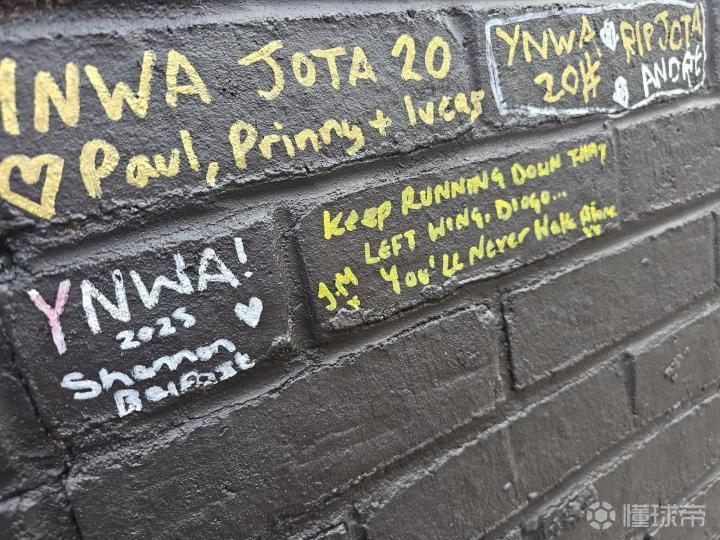 YNWA JOTA 20
♡ Paul, Prinny + lucas
YNWA! ♡ RIP JOTA
20# ♡ ANDRE
Keep RUNNING DOWN THAT
LEFT WING, DIOGO...
J.M You'll Never Walk Alone
x xx
YNWA!
2025 ♡
Shannon
Belfast
懂球帝